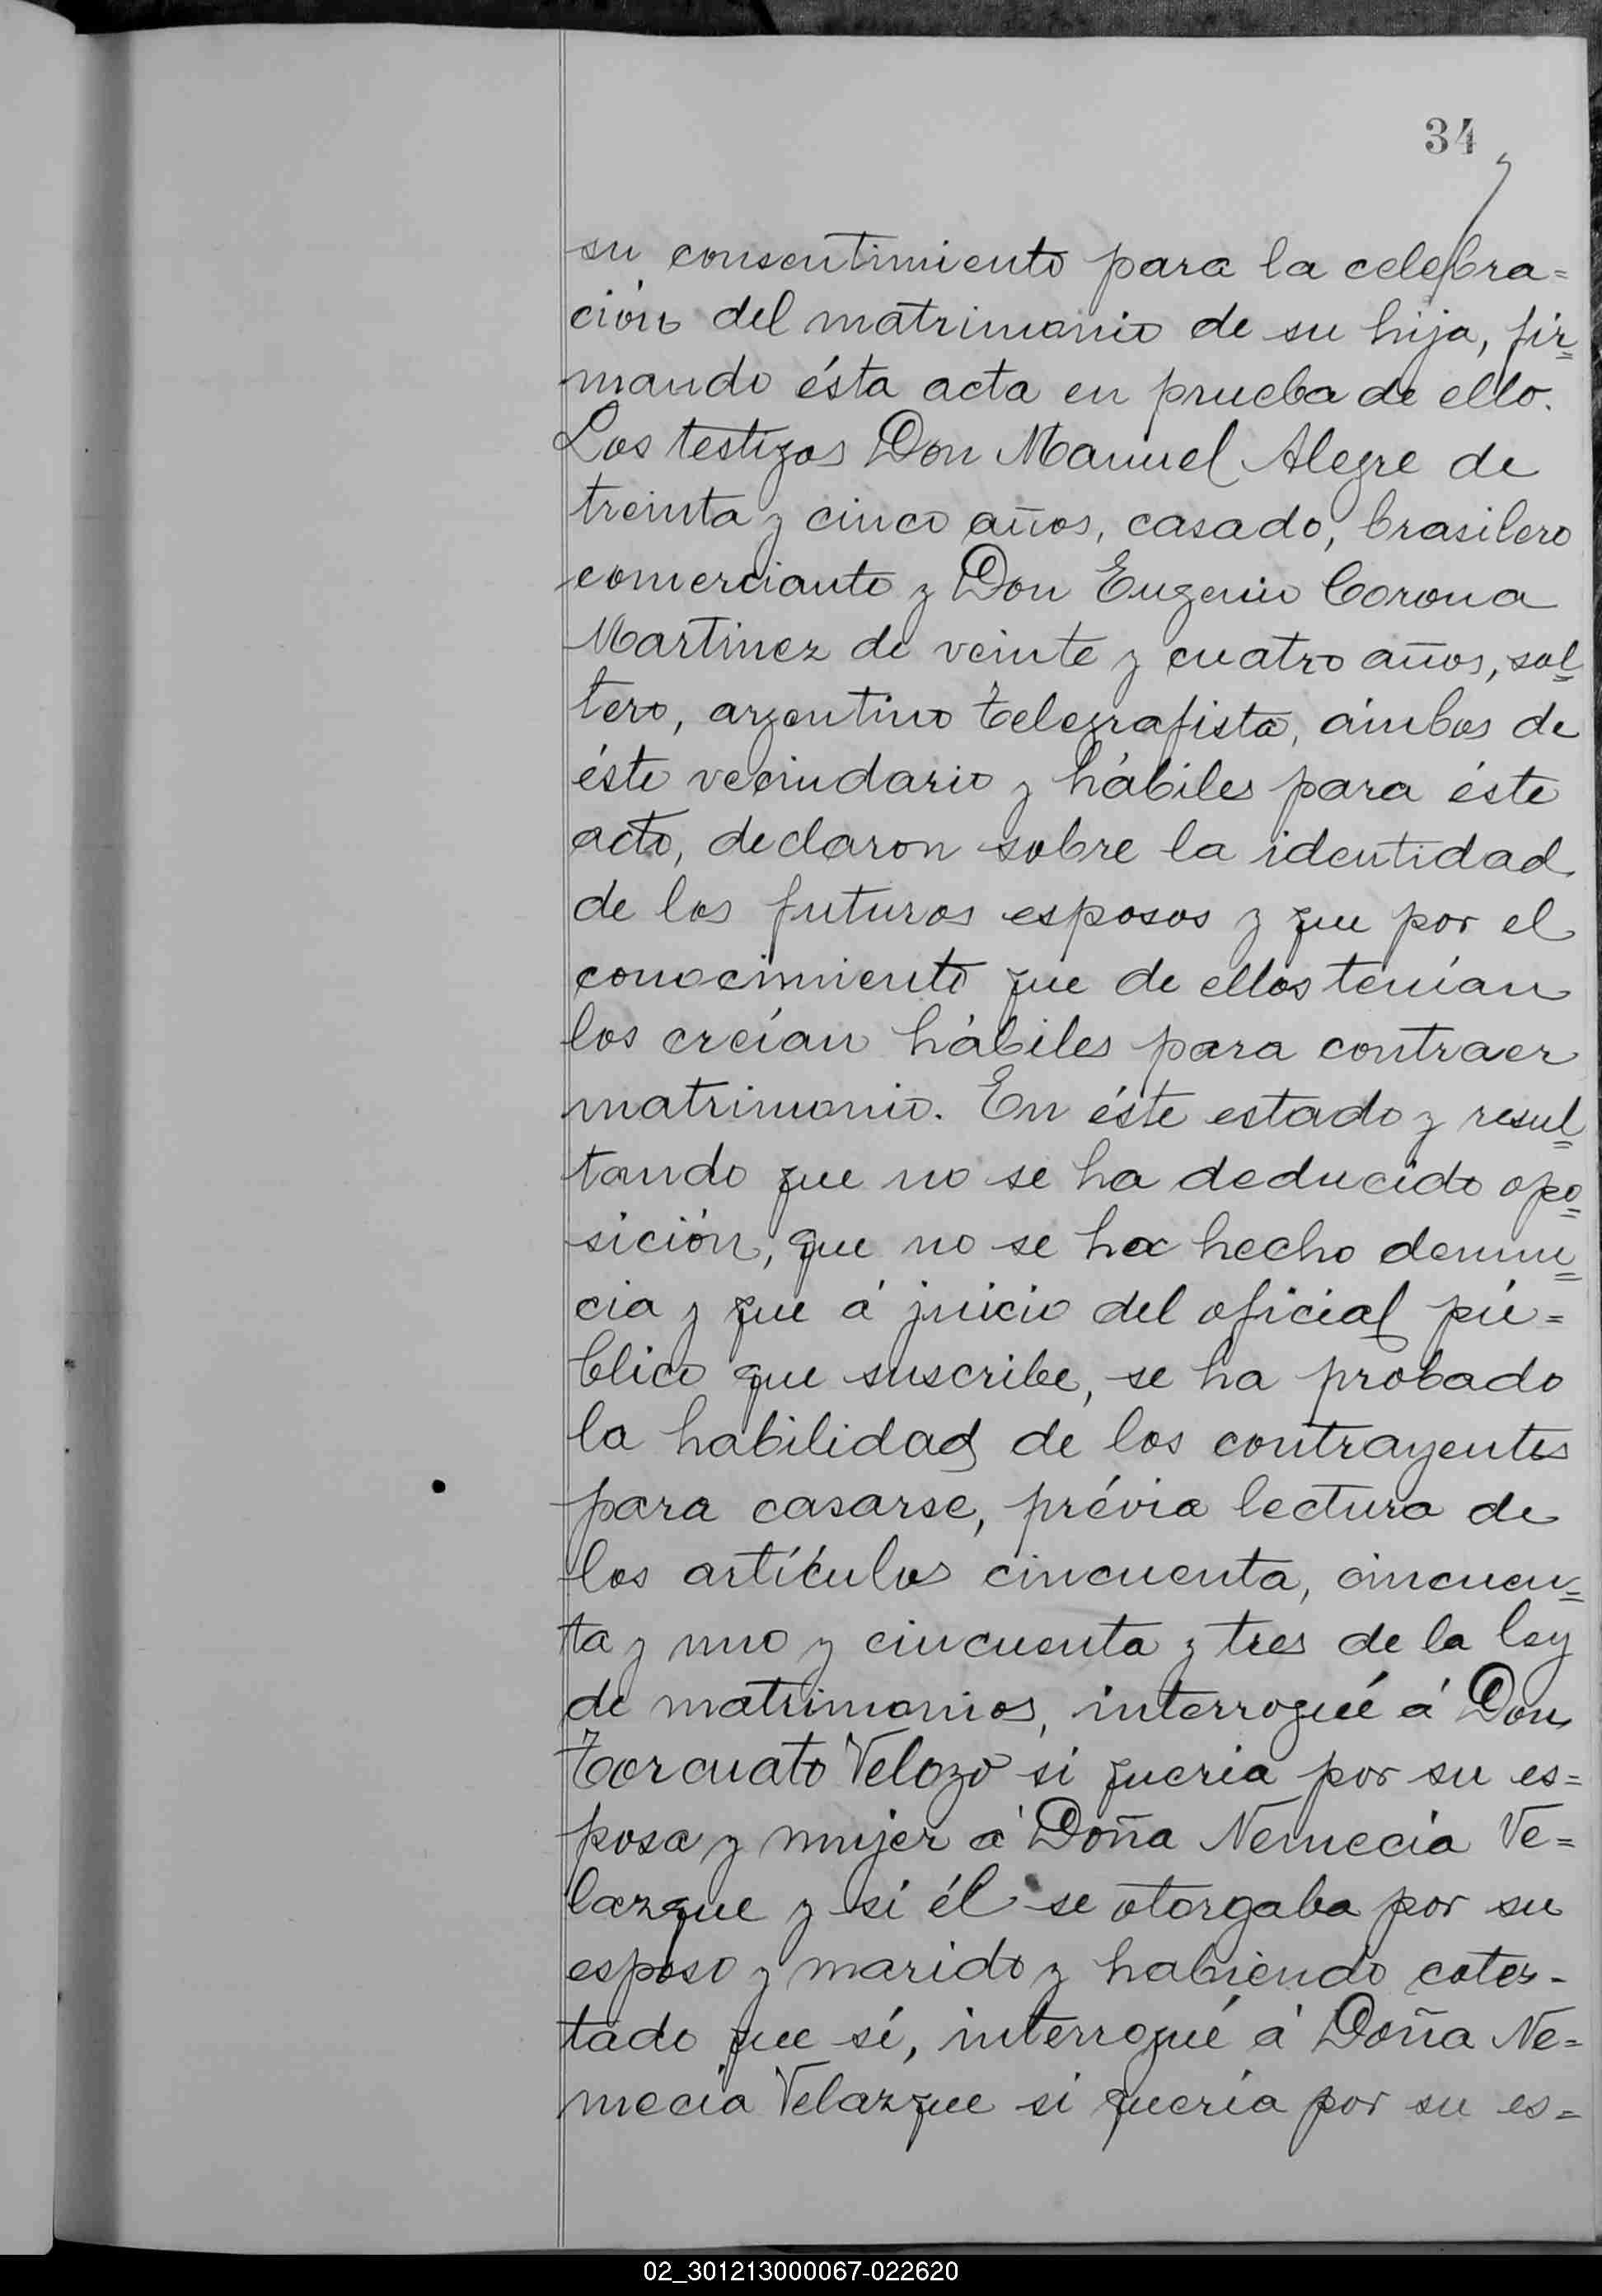 34
su consentimiento para la celebra=
ción del matrimonio de su hija, fir=
mando ésta acta en prueba de ello.
Los testigos Don Manuel Alegre de
treinta y cinco años, casado, brasilero
comerciante y Don Eugenio Corona
Martinez de veinte y cuatro años, sol=
tero, argentino telegrafista, ámbos de
éste vecindario y hábiles para éste
acto, declaron sobre la identidad
de los futuros esposos y que por el
conocimiento que de ellos tenían
los creían hábiles para contraer
matrimonio. En éste estado y resul=
tando que no se ha deducido opo=
sición, que no se ha hecho denun=
cia y que á juicio del oficial pú=
blico que suscribe, se ha probado
la habilidad de los contrayentes
para casarse, prévia lectura de
los artículos cincuenta, cincuen=
ta y uno y cincuenta y tres de la ley
de matrimonios, interrogué á Don
Torcuato Velozo si queria por su es=
posa y mujer á Doña Nemecia Ve=
lazque y si él se otorgaba por su
esposo y marido y habiendo cotes-
tado que sí, interrogué á Doña Ne=
mecia Velazque si quería por su es=
02_301213000067-022620